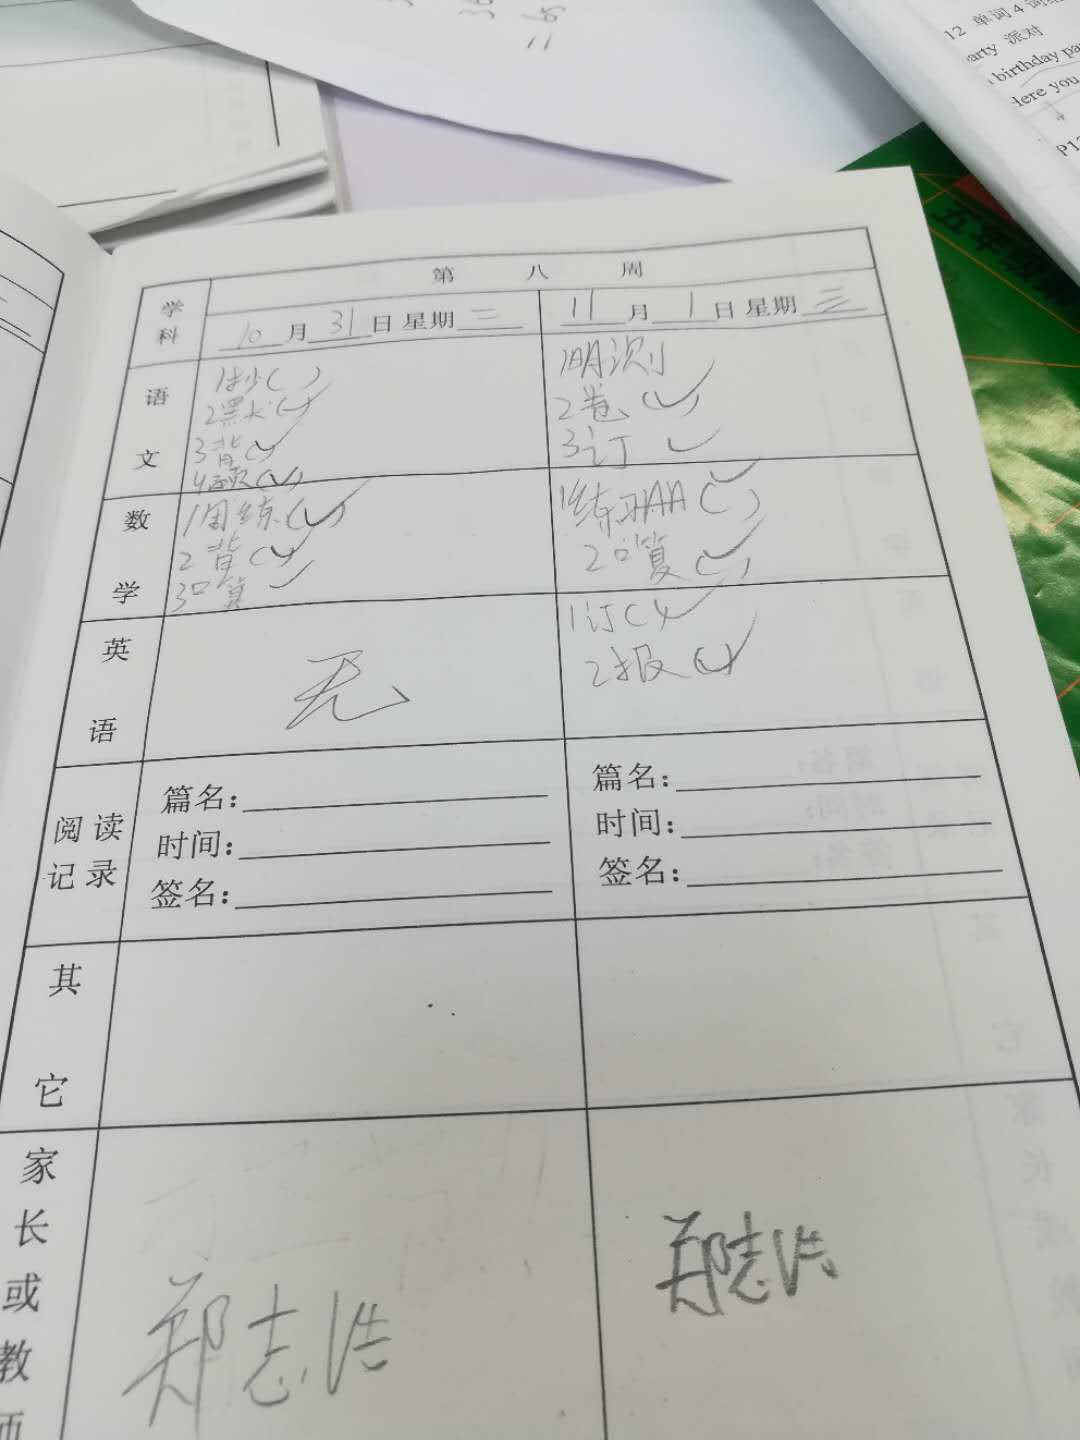 12 单词4词
party 派对
birthday pa
Here you
P12
第 八 周
学科
10月31日星期二
11月1日星期三
语文
1抄( )
2黑长(✓)
3背(✓)
4颂(✓)
1明测
2卷(✓)
3订✓
数学
1周练(✓)
2背(✓)
3口算✓
1练习AA(✓)
2口算(✓)
英语
无
1订(✓)
2报(✓)
阅读记录
篇名:
时间:
签名:
篇名:
时间:
签名:
其它
家长或教师
郑志浩
郑志浩